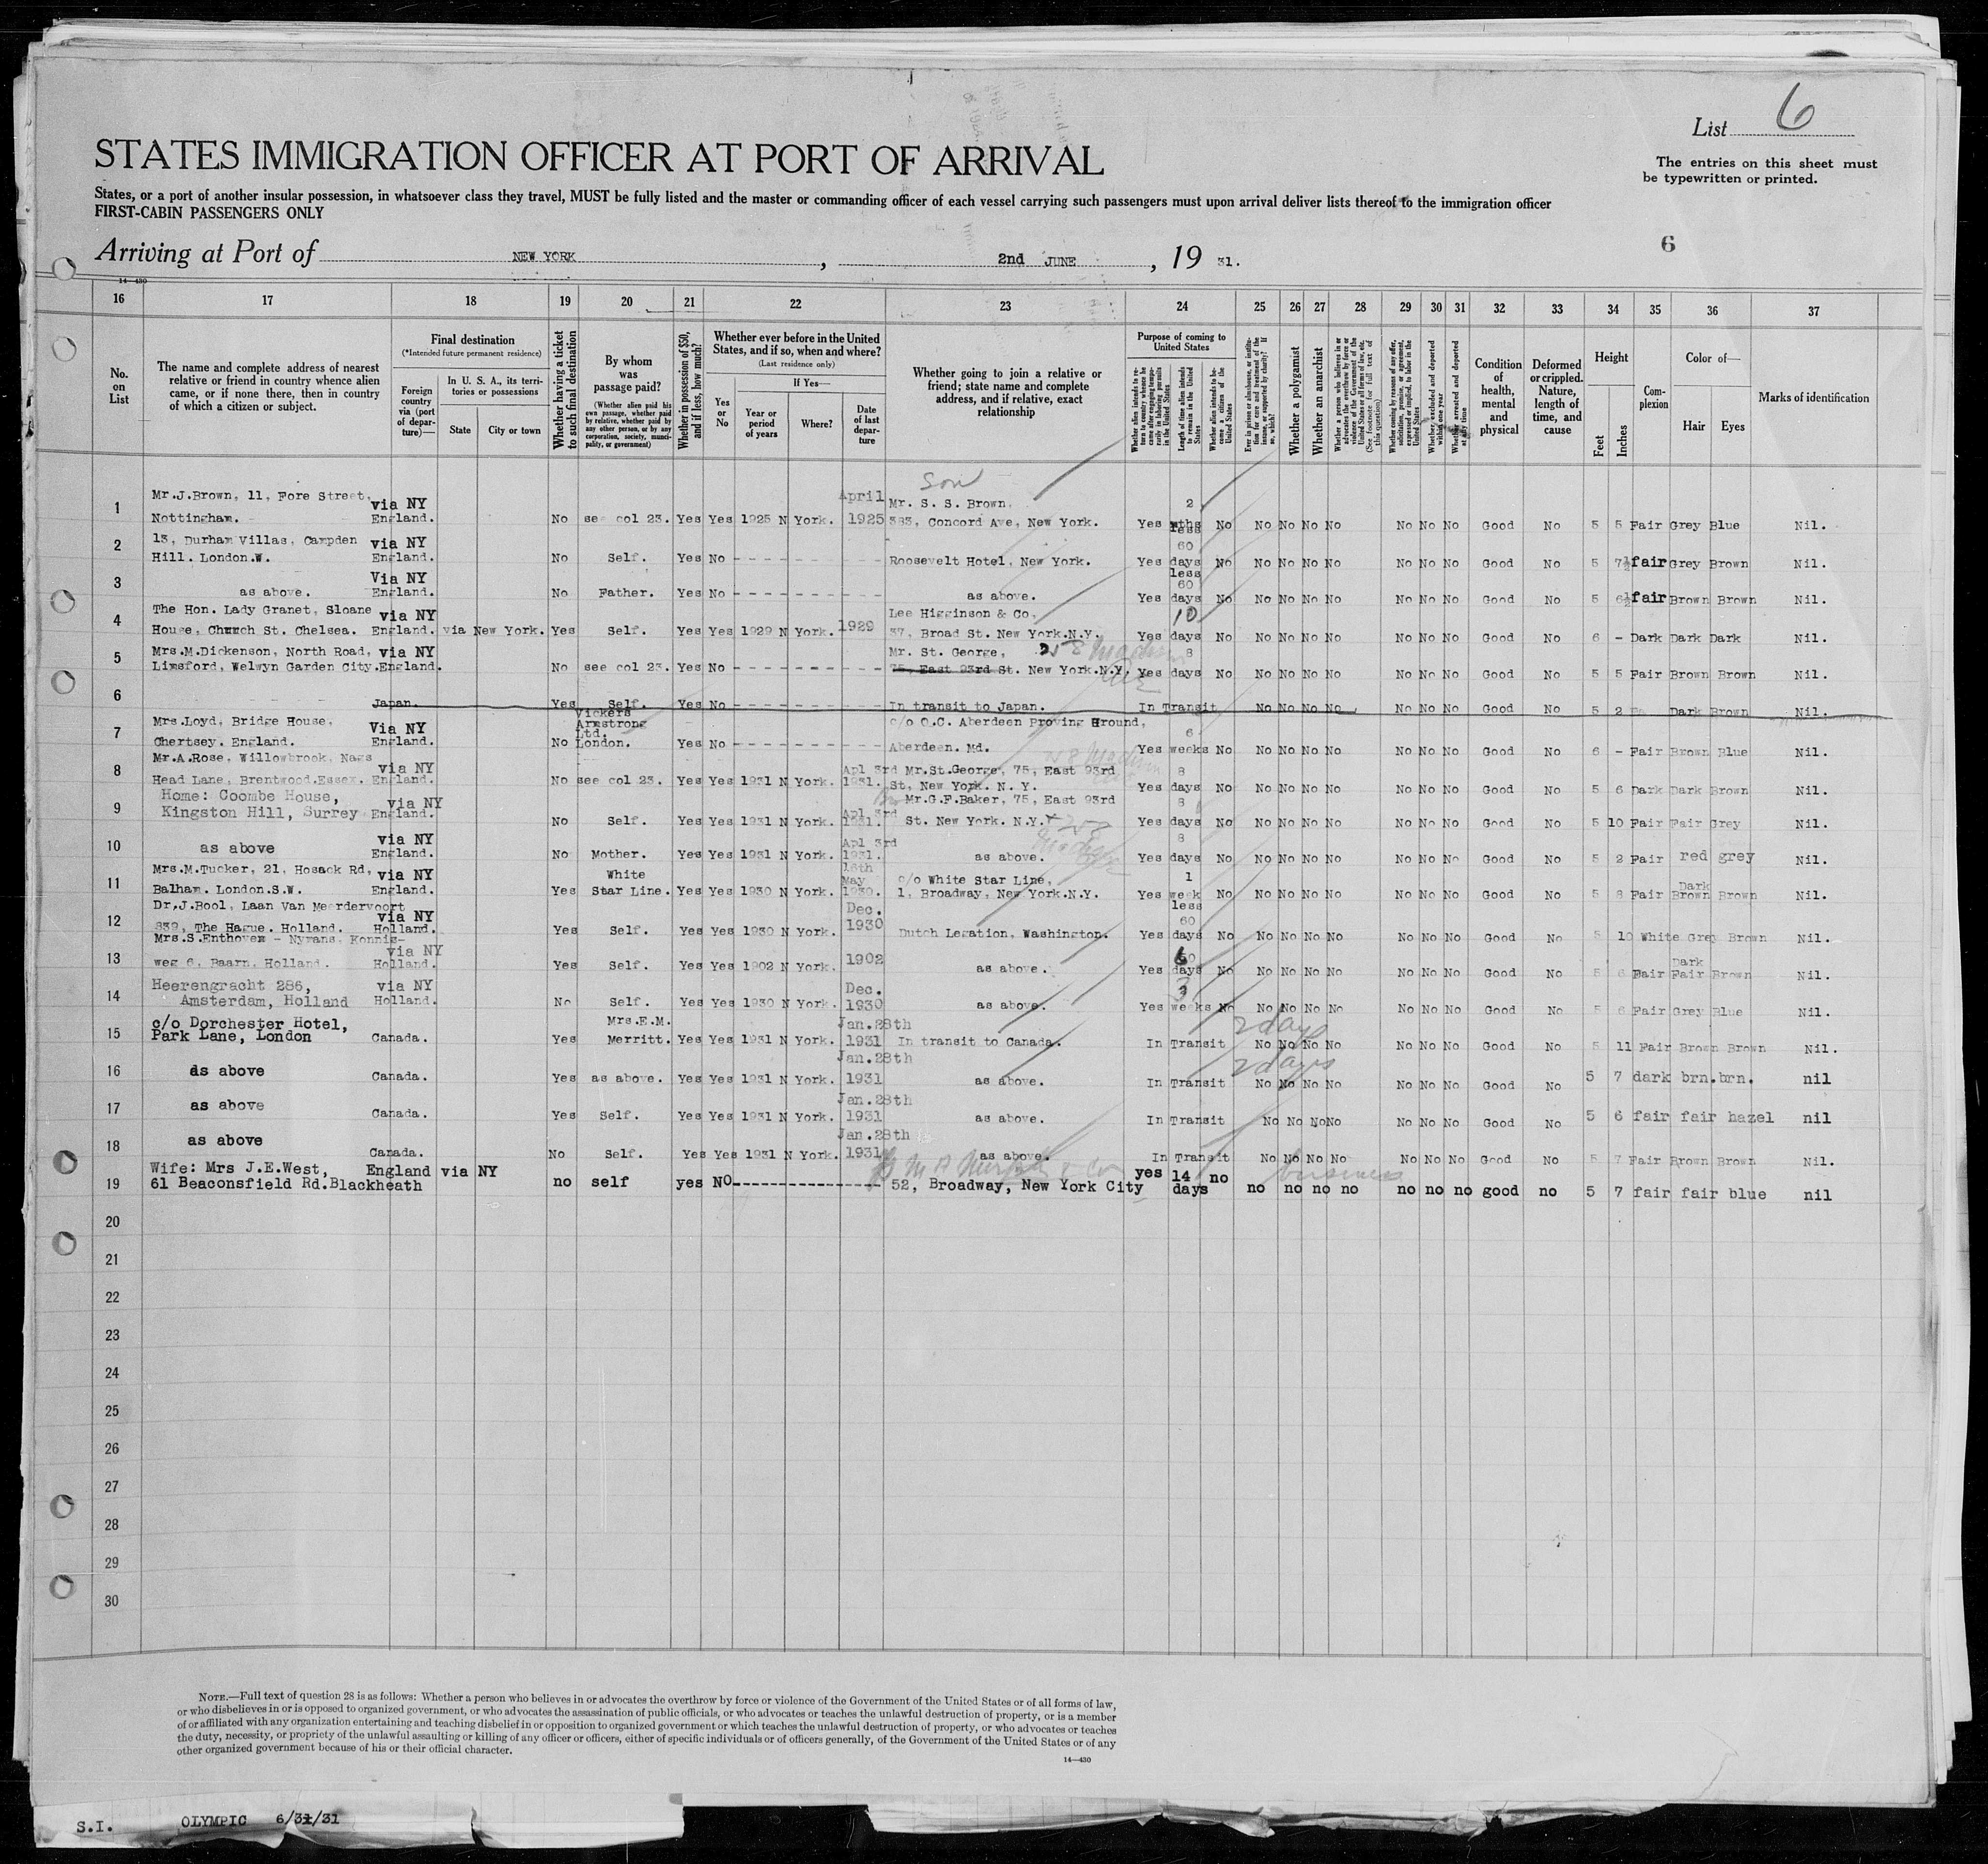 List 6
STATES IMMIGRATION OFFICER AT PORT OF ARRIVAL
The entries on this sheet must
be typewritten or printed.
States, or a port of another insular possession, in whatsoever class they travel, MUST be fully listed and the master or commanding officer of each vessel carrying such passengers must upon arrival deliver lists thereof to the immigration officer
FIRST-CABIN PASSENGERS ONLY
6
Arriving at Port of NEW YORK, 2nd JUNE, 19 31.
14-430
16 17 18 19 20 21 22 23 24 25 26 27 28 29 30 31 32 33 34 35 36 37
No. on List
The name and complete address of nearest relative or friend in country whence alien came, or if none there, then in country of which a citizen or subject.
Final destination
(*Intended future permanent residence)
Foreign country via (port of departure)—
In U. S. A., its territories or possessions
State
City or town
Whether having a ticket to such final destination
By whom was passage paid?
(Whether alien paid his own passage, whether paid by relative, whether paid by any other person, or by any corporation, society, municipality, or government)
Whether in possession of $50, and if less, how much?
Whether ever before in the United States, and if so, when and where?
(Last residence only)
Yes or No
If Yes—
Year or period of years
Where?
Date of last departure
Whether going to join a relative or friend; state name and complete address, and if relative, exact relationship
Purpose of coming to United States
Whether alien intends to return to country whence he came after engaging temporarily in laboring pursuits in the United States
Length of time alien intends to remain in the United States
Whether alien intends to become a citizen of the United States
Ever in prison or almshouse, or institution for care and treatment of the insane, or supported by charity? If so, which?
Whether a polygamist
Whether an anarchist
Whether a person who believes in or advocates the overthrow by force or violence of the Government of the United States or all forms of law, etc. (See footnote for full text of this question)
Whether coming by reasons of any offer, solicitation, promise, or agreement, expressed or implied, to labor in the United States
Whether, excluded and deported within one year
Whether arrested and deported at any time
Condition of health, mental and physical
Deformed or crippled. Nature, length of time, and cause
Height
Feet
Inches
Complexion
Color of—
Hair
Eyes
Marks of identification
Son
1 Mr.J.Brown, 11, Fore Street, via NY April Mr. S. S. Brown, 2
Nottingham. England. No see col 23. Yes Yes 1925 N York. 1925 363, Concord Ave, New York. Yes mths No No No No No No No No Good No 5 5 Fair Grey Blue Nil.
2 13, Durham Villas, Campden via NY less 60
Hill. London.W. England. No Self. Yes No - - - - - - - - - Roosevelt Hotel, New York. Yes days No No No No No No No No Good No 5 7½ fair Grey Brown Nil.
3 Via NY less 60
as above. England. No Father. Yes No - - - - - - - - - as above. Yes days No No No No No No No No Good No 5 6½ fair Brown Brown Nil.
4 The Hon. Lady Granet, Sloane via NY Lee Higginson & Co, 10
House, Church St. Chelsea. England. via New York. Yes Self. Yes Yes 1929 N York. 1929 37, Broad St. New York.N.Y. Yes days No No No No No No No No Good No 6 - Dark Dark Dark Nil.
5 Mrs.M.Dickenson, North Road, via NY Mr. St. George, 258 Madison Ave 8
Limsford, Welwyn Garden City.England. No see col 23. Yes No - - - - - - - - - 75, East 93rd St. New York.N.Y. Yes days No No No No No No No No Good No 5 5 Fair Brown Brown Nil.
6 Japan. Yes Self. Yes No - - - - - - - - - In transit to Japan. In Transit No No No No No No No Good No 5 2 Dark Brown Nil.
7 Mrs.Loyd, Bridge House, Via NY Vickers Armstrong Ltd. c/o O.C. Aberdeen Proving Ground, 6
Chertsey. England. England. No London. Yes No - - - - - - - - - Aberdeen. Md. Yes weeks No No No No No No No No Good No 6 - Fair Brown Blue Nil.
8 Mr.A.Rose, Willowbrook, Nags via NY Apl 3rd Mr.St.George, 75, East 93rd 258 Madison Ave 8
Head Lane, Brentwood.Essex. England. No see col 23. Yes Yes 1931 N York. 1931. St, New York. N. Y. Yes days No No No No No No No No Good No 5 6 Dark Dark Brown Nil.
9 Home: Coombe House, via NY Apl 3rd Mr.G.F.Baker, 75, East 93rd 8
Kingston Hill, Surrey England. No Self. Yes Yes 1931 N York. 1931. St. New York. N.Y. 258 Madison Yes days No No No No No No No No Good No 5 10 Fair Fair Grey Nil.
10 via NY Apl 3rd 8
as above England. No Mother. Yes Yes 1931 N York. 1931. as above. Yes days No No No No No No No No Good No 5 2 Fair red grey Nil.
11 Mrs.M.Tucker, 21, Hosack Rd, via NY White 16th May c/o White Star Line, 1
Balham. London.S.W. England. Yes Star Line. Yes Yes 1930 N York. 1930. 1, Broadway, New York.N.Y. Yes week No No No No No No No No Good No 5 8 Fair Dark Brown Brown Nil.
12 Dr.J.Bool, Laan Van Meerdervoort via NY Dec. less 60
839, The Hague. Holland. Holland. Yes Self. Yes Yes 1930 N York. 1930 Dutch Legation, Washington. Yes days No No No No No No No No Good No 5 10 White Grey Brown Nil.
13 Mrs.S.Enthoven - Nyrans, Konnis- via NY
weg 6, Baarn, Holland. Holland. Yes Self. Yes Yes 1902 N York. 1902 as above. Yes 60 days No No No No No No No No Good No 5 6 Fair Dark Fair Brown Nil.
14 Heerengracht 286, via NY Dec. 3
Amsterdam, Holland Holland. No Self. Yes Yes 1930 N York. 1930 as above. Yes weeks No No No No No No No No Good No 5 6 Fair Grey Blue Nil.
15 c/o Dorchester Hotel, Mrs.E.M. Jan.28th 2 days
Park Lane, London Canada. Yes Merritt. Yes Yes 1931 N York. 1931 In transit to Canada. In Transit No No No No No No No Good No 5 11 Fair Brown Brown Nil.
16 Jan.28th 2 days
as above Canada. Yes as above. Yes Yes 1931 N York. 1931 as above. In Transit No No No No No No No Good No 5 7 dark brn.brn. nil
17 Jan.28th
as above Canada. Yes Self. Yes Yes 1931 N York. 1931 as above. In Transit No No No No No No No Good No 5 6 fair fair hazel nil
18 Jan.28th
as above Canada. No Self. Yes Yes 1931 N York. 1931 as above. In Transit No No No No No No No Good No 5 7 Fair Brown Brown Nil.
19 Wife: Mrs J.E.West, England via NY M Murphy & Co yes 14 no business
61 Beaconsfield Rd.Blackheath no self yes NO---------------- 52, Broadway, New York City days no no no no no no no good no 5 7 fair fair blue nil
20
21
22
23
24
25
26
27
28
29
30
NOTE.—Full text of question 28 is as follows: Whether a person who believes in or advocates the overthrow by force or violence of the Government of the United States or of all forms of law,
or who disbelieves in or is opposed to organized government, or who advocates the assassination of public officials, or who advocates or teaches the unlawful destruction of property, or is a member
of or affiliated with any organization entertaining and teaching disbelief in or opposition to organized government or which teaches the unlawful destruction of property, or who advocates or teaches
the duty, necessity, or propriety of the unlawful assaulting or killing of any officer or officers, either of specific individuals or of officers generally, of the Government of the United States or of any
other organized government because of his or their official character.
14—430
S.I. OLYMPIC 6/31/31